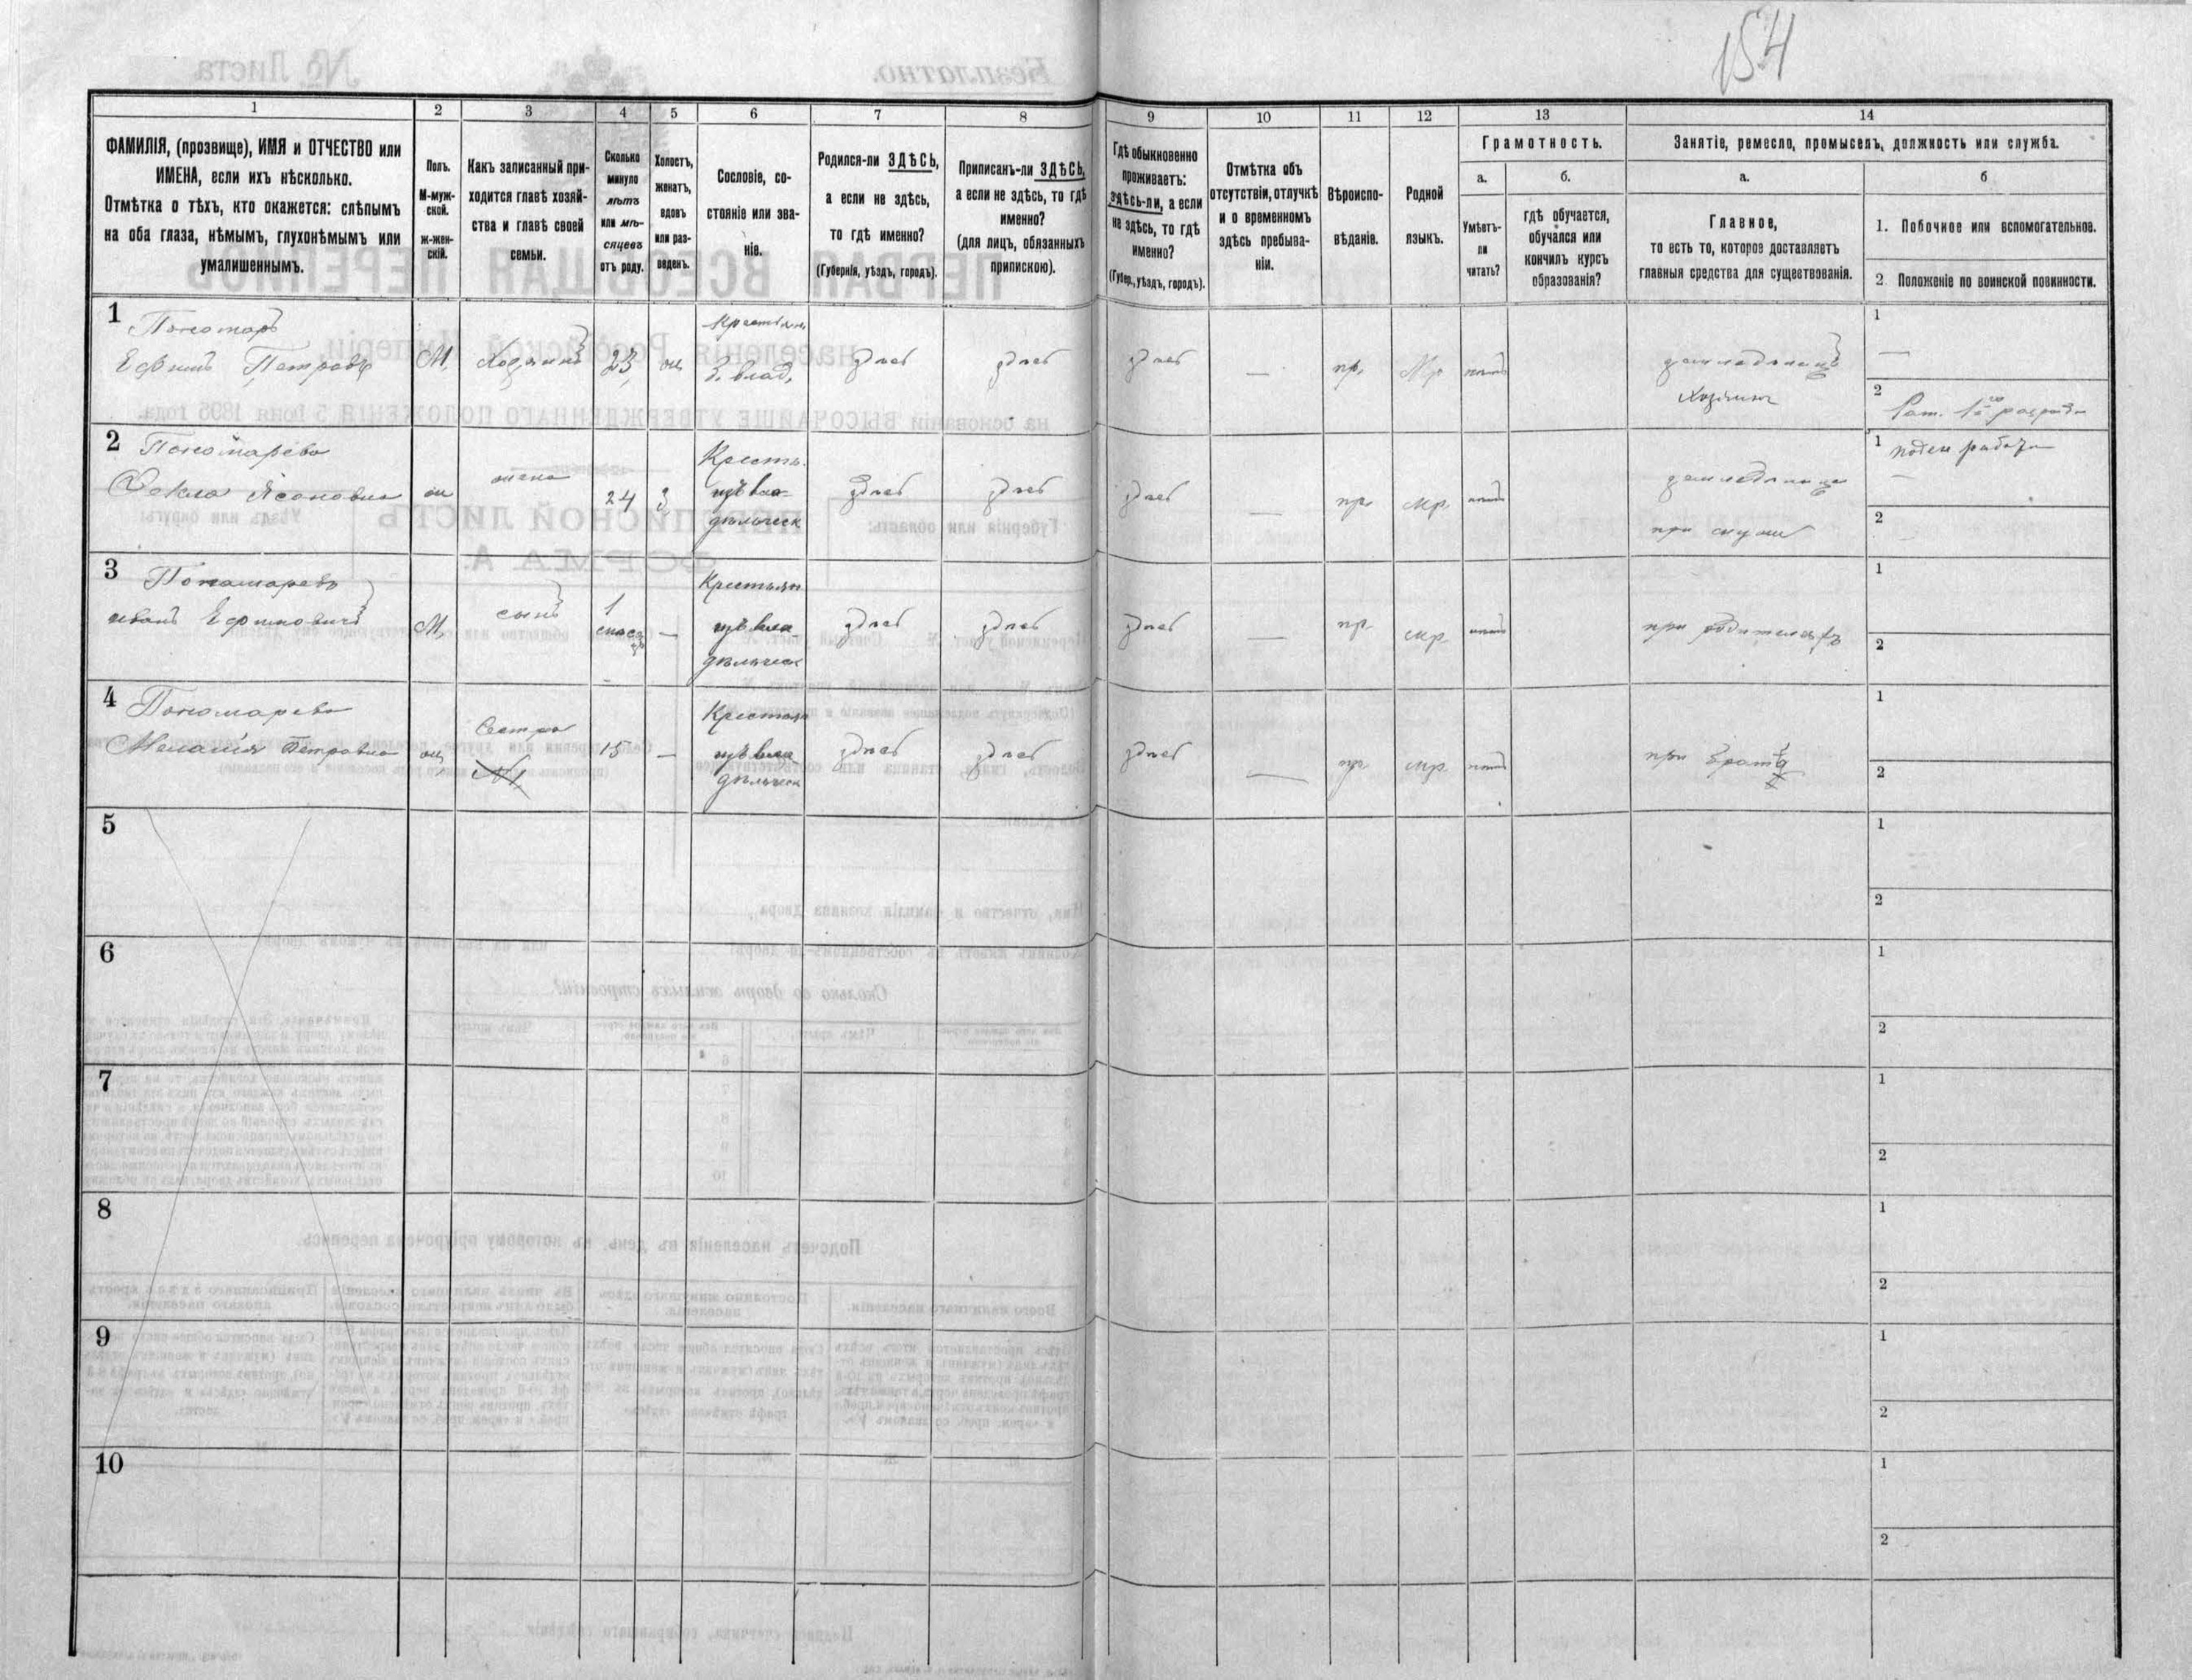 154
1
2
3
4
5
6
7
8
9
10
11
12
13
14
ФАМИЛІЯ, (прозвище), ИМЯ и ОТЧЕСТВО или
ИМЕНА, если ихъ нѣсколько.
Отмѣтка о тѣхъ, кто окажется: слѣпымъ
на оба глаза, нѣмымъ, глухонѣмымъ или
умалишеннымъ.
Полъ.
М-муж-
ской.
ж-жен-
скій.
Какъ записанный при-
ходится главѣ хозяй-
ства и главѣ своей
семьи.
Сколько
минуло
лѣтъ
или мѣ-
сяцевъ
отъ роду.
Холостъ,
женатъ,
вдовъ
или раз-
веденъ.
Сословіе, со-
стояніе или зва-
ніе.
Родился-ли ЗДѢСЬ,
а если не здѣсь,
то гдѣ именно?
(Губернія, уѣздъ, городъ).
Приписанъ-ли ЗДѢСЬ,
а если не здѣсь, то гдѣ
именно?
(для лицъ, обязанныхъ
припискою).
Гдѣ обыкновенно
проживаетъ:
здѣсь-ли, а если
не здѣсь, то гдѣ
именно?
(Губер., уѣздъ, городъ).
Отмѣтка объ
отсутствіи, отлучкѣ
и о временномъ
здѣсь пребыва-
ніи.
Вѣроиспо-
вѣданіе.
Родной
языкъ.
Грамотность.
а.
Умѣетъ-
ли
читать?
б.
гдѣ обучается,
обучался или
кончилъ курсъ
образованія?
Занятіе, ремесло, промыселъ, должность или служба.
а.
Главное,
то есть то, которое доставляетъ
главныя средства для существованія.
б
1. Побочное или вспомогательное.
2 Положеніе по воинской повинности.
1
Пономарь
Ефимъ Петровъ
М,
Хозяинъ
23
Крестьян
З. влад,
здѣсь
здѣсь
здѣсь
—
пр.
Мр
нѣтъ
земледѣлецъ
Хозяинъ
1
—
2
Рат. 1го разряда
2
Пономарева
Фекла Ясоновна
ж
жена
24
З
Кресть.
изъ вла-
дѣльческ
здѣсь
здѣсь
здѣсь
—
пр
мр.
нѣтъ
земледѣлица
при мужѣ
1
2
3
Пономаревъ
Иванъ Ефимовичъ
М,
сынъ
1
мѣсяцъ
—
Крестьян
изъ вла
дѣльческ
здѣсь
здѣсь
здѣсь
—
пр
мр
нѣтъ
при родителяхъ
1
2
4
Пономарева
Меланія Петровна
ж
Сестра
15
—
Крестьян
изъ вла
дѣльческ
здѣсь
здѣсь
здѣсь
—
пр
мр
нѣтъ
при братѣ
1
2
5
1
2
6
1
2
7
1
2
8
1
2
9
1
2
10
1
2